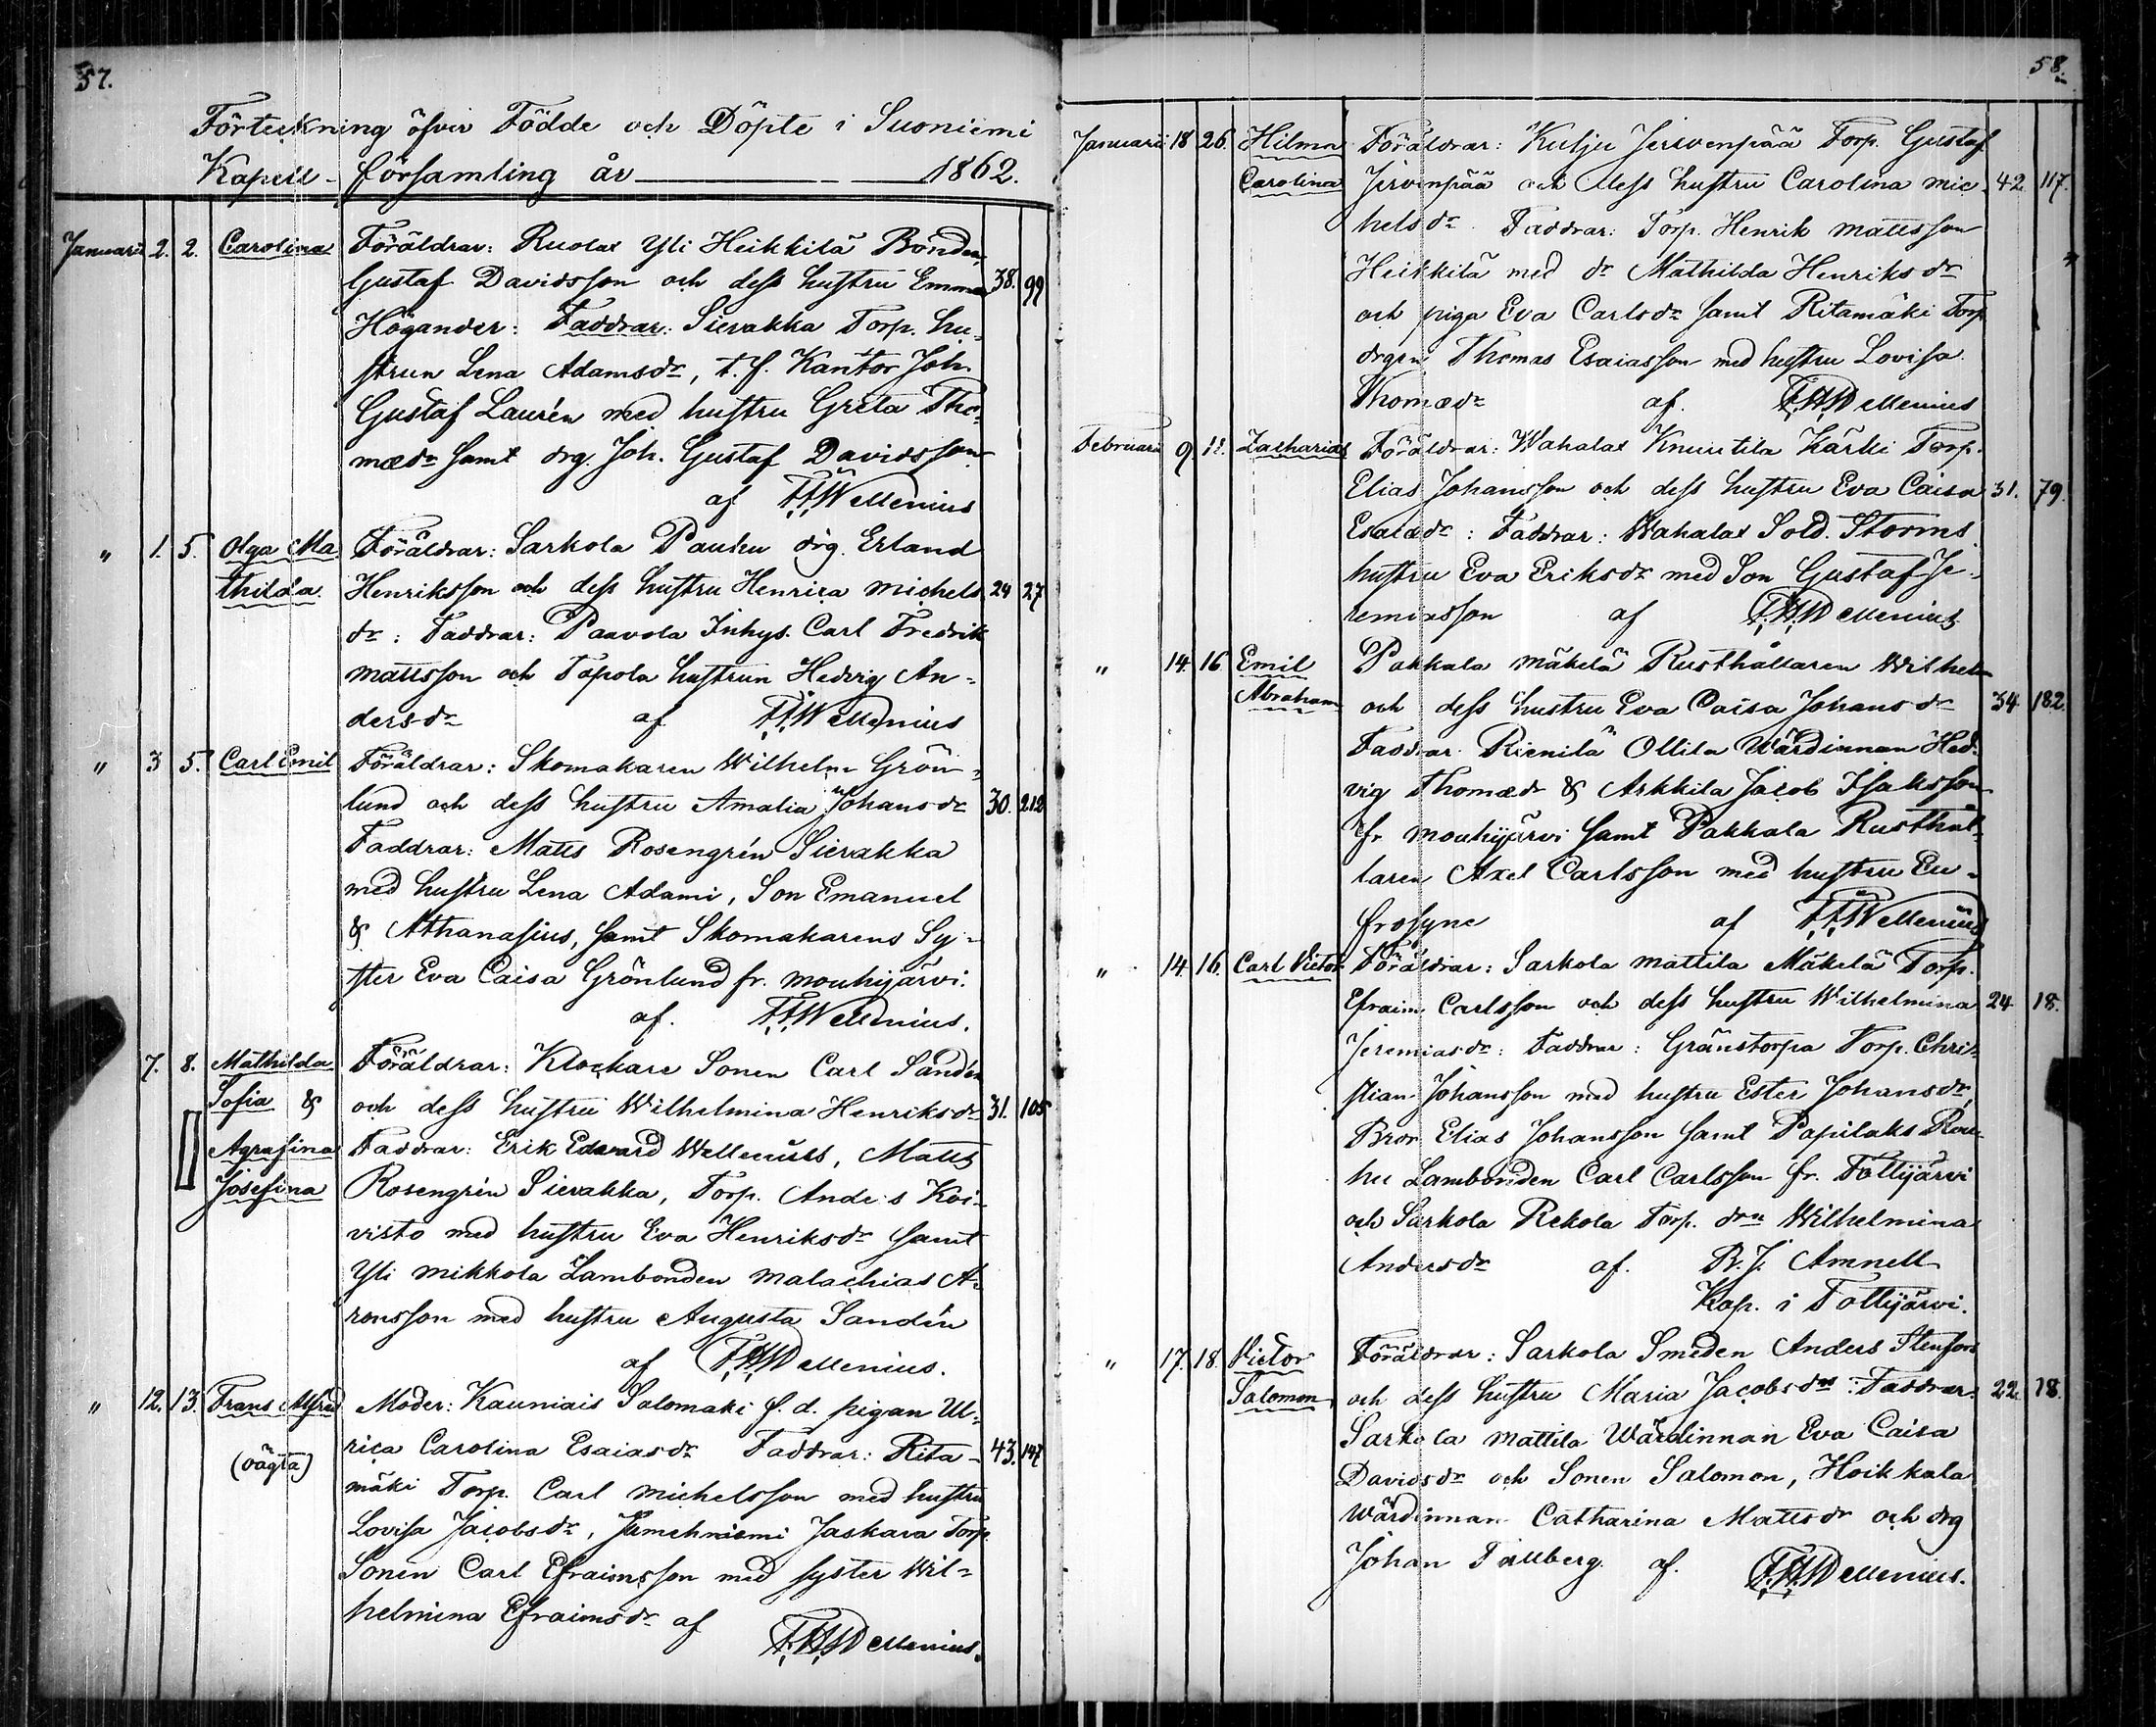 57.
Förteckning öfver Födde och Döpte i Suoniemi
Kapell-församling år 1862.
Januarii 2. 2. Carolina Föräldrar: Ruolax Yli Heikkilä Bonden
Gustaf Davidsson och dess hustru Emma 38. 99
Högander: Faddrar: Sierakka Torp. hu-
strun Lena Adamsdr, t. f. Kantor Joh.
Gustaf Laurén med hustru Greta Tho-
mædr samt drg. Joh. Gustaf Davidsson
af F.F. Wellenius
" 1. 5. Olga Ma- Föräldrar: Sarkola Pauhu drg. Erland
thilda. Henriksson och dess hustru Henrica Michels 24 27
dr: Faddrar: Paavola Inhys. Carl Fredrik
Mattsson och Topola hustrun Hedvig An-
dersdr af F.F. Wellenius
" 3 5. Carl Emil Föräldrar: Skomakaren Wilhelm Grön-
lund och dess hustru Amalia Johansdr 30. 212
Faddrar: Matts Rosengrén Sierakka
med hustru Lena Adami, Son Emanuel
& Athanasius, samt Skomakarens Sy-
ster Eva Caisa Grönlund fr. Mouhijärvi.
af. F.F. Wellenius.
7. 8. Mathilda Föräldrar: Klockare Sonen Carl Sandén
Sofia & och dess hustru Wilhelmina Henriksdr 31. 105
Agrafina Faddrar: Erik Edvard Wellenius, Matts
Josefina Rosengrén Sierakka, Torp. Anders Koi-
visto med hustru Eva Henriksdr samt
Yli Mikkola Lambonden Malachias A-
ronsson med hustru Augusta Sandén
af F.F. Wellenius.
" 12. 13. Frans Alfred Moder: Kauniais Salomaki f. d. pigan Ul-
(oägta) rica Carolina Esaiasdr Faddrar: Rita- 43. 147
mäki Torp. Carl Michelsson med hustru
Lovisa Jacobsdr, Jaskara Torp.
Sonen Carl Efraimsson med syster Wil-
helmina Efraimsdr af F.F. Wellenius.
58.
Januarii 18 26. Hilma Föräldrar: Kulju Jervenpää Torp. Gustaf
Carolina Jervenpää och dess hustru Carolina Mic- 42. 117.
helsdr. Faddrar: Torp. Henrik Mattsson
Heikkilä med dr Mathilda Henriksdr
och piga Eva Carlsdr samt Ritamäki Torp
drgen Thomas Esaiasson med hustru Lovisa
Thomædr af. F.F. Wellenius
Februarii 9. 11. Zacharias Föräldrar: Wahalax Knuutila Kärki Torp.
Elias Johansson och dess hustru Eva Caisa 31. 79.
Esaiædr: Faddrar: Wahalax Sold. Storms
hustru Eva Eriksdr med Son Gustaf Je-
remiasson af F.F. Wellenius
" 14. 16 Emil Pakkala Mäkelä Rusthållaren Wilhelm
Abraham och dess hustru Eva Caisa Johansdr 34 182.
Faddrar: Rienilä Ollila Wärdinnan Hed-
vig Thomædr & Arkkila Jacob Isaksson
fr Mouhijärvi samt Pakkala Rusthål-
laren Axel Carlsson med hustru Eu-
frosyne af F.F. Wellenius
" 14. 16. Carl Victor Föräldrar: Sarkola Mattila Mäkelä Torp.
Efraim Carlsson och dess hustru Wilhelmina 24. 18.
Jeremiasdr: Faddrar: Gränstorpa Torp. Chri-
stian Johansson med hustru Ester Johansdr,
Bror Elias Johansson samt Papilaks Rou-
hu Lambonden Carl Carlsson fr. Tottijärvi
och Sarkola Rekola Torp. drn Wilhelmina
Andersdr af. B. J. Amnell
Kap. i Tottijärvi.
" 17. 18. Victor Föräldrar: Sarkola Smeden Anders Stenfors
Salomon och dess hustru Maria Jacobsdr: Faddrar: 22. 18.
Sarkola Mattila Wärdinnan Eva Caisa
Davidsdr och Sonen Salomon, Hoikkala
Wärdinnan Catharina Mattsdr och drg
Johan Tallberg. af. F.F. Wellenius.